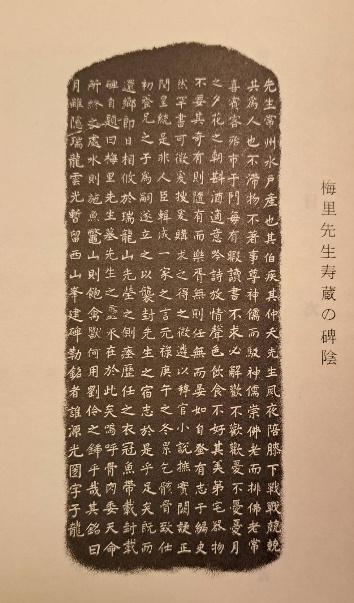 梅里先生寿蔵の碑陰
先生常州水戸産也其伯疾其仲夭先生夙夜陪膝下戰戰兢兢
其為人也不滞物不著事尊神儒而駁神儒崇佛老而排佛老常
喜賓客殆市于門毎有暇讀書不求必解歡不歡歡憂不憂憂月
之夕花之朝斟酒適意吟詩放情聲色飲食不好其美第宅器物
不要其奇有則隨有而樂胥無則任無而晏如自蚤有志于編史
然罕書可徴爰捜爰購求之得之微遴以稗官小説摭實闕疑正
閏皇統是非人臣輯成一家之言元禄庚午之冬累乞骸骨致仕
初養兄之子為嗣遂立之以襲封先生之宿志於是乎足矣既而
還郷即日相攸於瑞龍山先塋之側瘞歴任之衣冠魚帶載封載
碑自題曰梅里先生墓先生之靈永在於此矣嗚呼骨肉委天命
所終之處水則施魚鼈山則飽禽獸何用劉伶之鍤乎哉其銘曰
月雖隱瑞龍雲光暫留西山峯建碑勒銘者誰源光圀字子龍